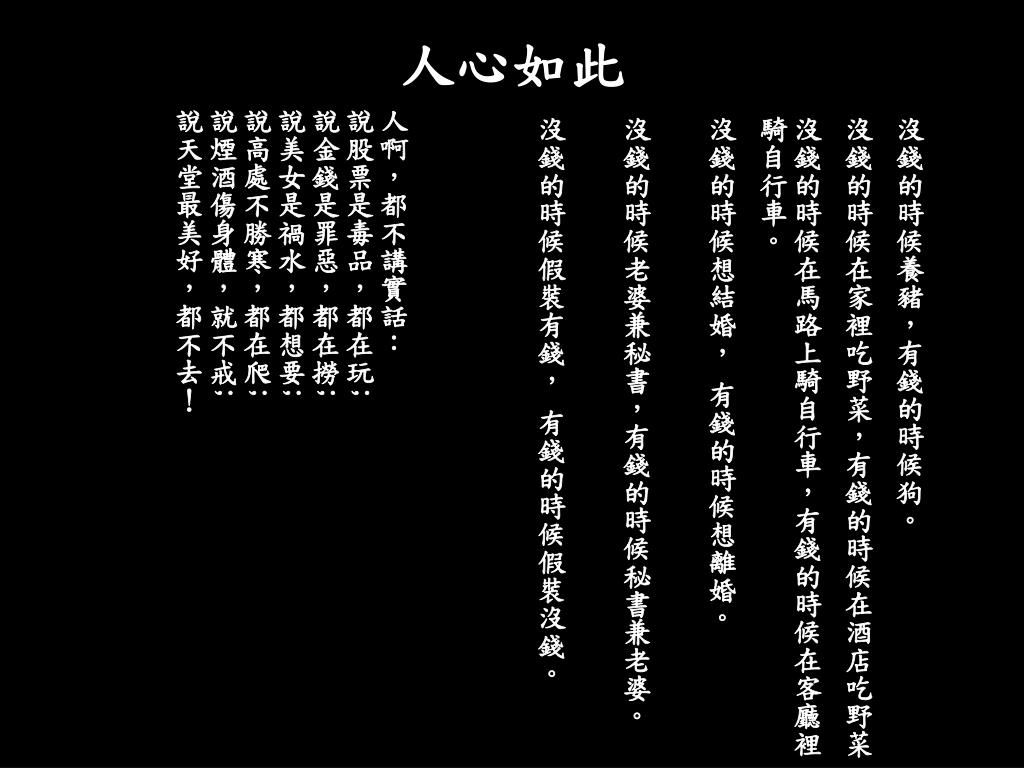 人心如此
沒錢的時候養豬，有錢的時候狗。
沒錢的時候在家裡吃野菜，有錢的時候在酒店吃野菜
沒錢的時候在馬路上騎自行車，有錢的時候在客廳裡
騎自行車。
沒錢的時候想結婚，有錢的時候想離婚。
沒錢的時候老婆兼秘書，有錢的時候秘書兼老婆。
沒錢的時候假裝有錢，有錢的時候假裝沒錢。
人啊，都不講實話：
說股票是毒品，都在玩；
說金錢是罪惡，都在撈；
說美女是禍水，都想要；
說高處不勝寒，都在爬；
說煙酒傷身體，就不戒；
說天堂最美好，都不去！